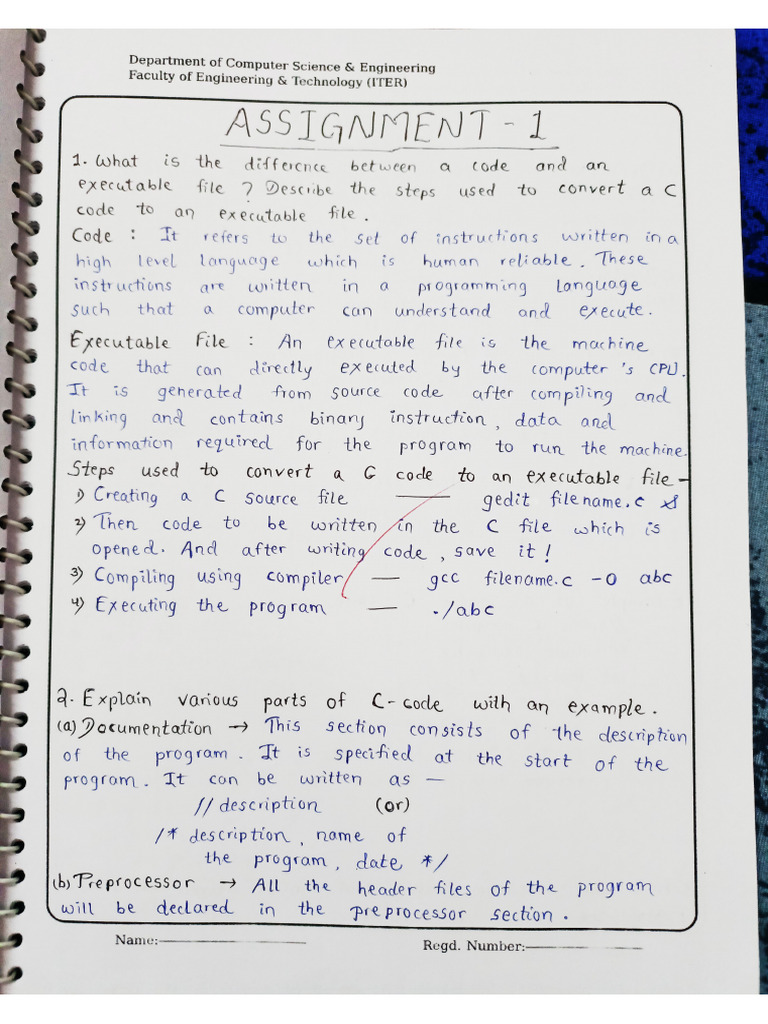 Department of Computer Science & Engineering
Faculty of Engineering & Technology (ITER)
ASSIGNMENT - 1
1. What is the difference between a code and an
executable file ? Describe the steps used to convert a C
code to an executable file.
Code : It refers to the set of instructions written in a
high level language which is human reliable. These
instructions are written in a programming language
such that a computer can understand and execute.
Executable File : An executable file is the machine
code that can directly executed by the computer's CPU.
It is generated from source code after compiling and
linking and contains binary instruction, data and
information required for the program to run the machine.
Steps used to convert a C code to an executable file -
1) Creating a C source file —— gedit filename.c
2) Then code to be written in the C file which is
opened. And after writing code, save it!
3) Compiling using compiler — gcc filename.c -o abc
4) Executing the program — ./abc
2. Explain various parts of C-code with an example.
(a) Documentation → This section consists of the description
of the program. It is specified at the start of the
program. It can be written as —
// description (or)
/* description, name of
the program, date */
(b) Preprocessor → All the header files of the program
will be declared in the preprocessor section.
Name: Regd. Number: